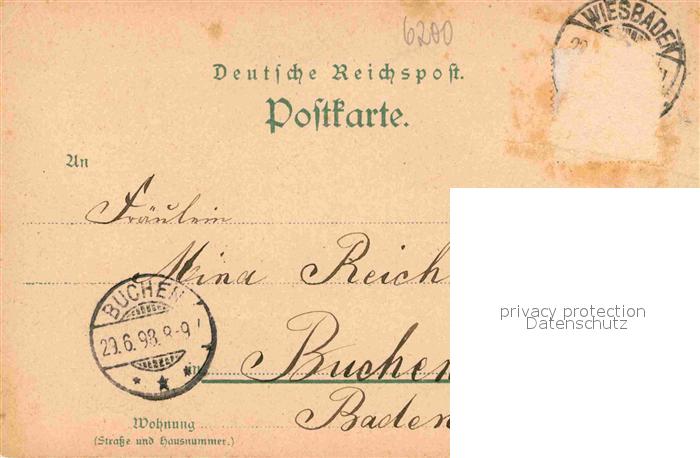 6200
WIESBADEN
Deutsche Reichspost.
Postkarte.
An
Fräulein
Mina Reich
BUCHEN
29.6.98.8-9
in Buchen
Baden
Wohnung
(Straße und Hausnummer.)
privacy protection
Datenschutz